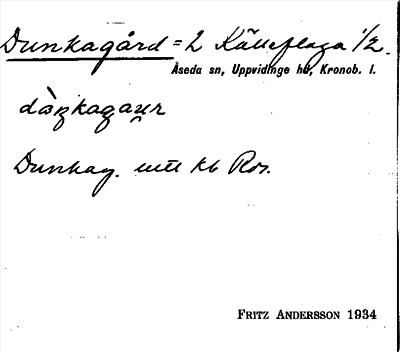 Dunkagård = 2 Källeflaga 1/2.
Åseda sn, Uppvidinge hd, Kronob. l.
Dunkag. utt kb Ros.
FRITZ ANDERSSON 1934